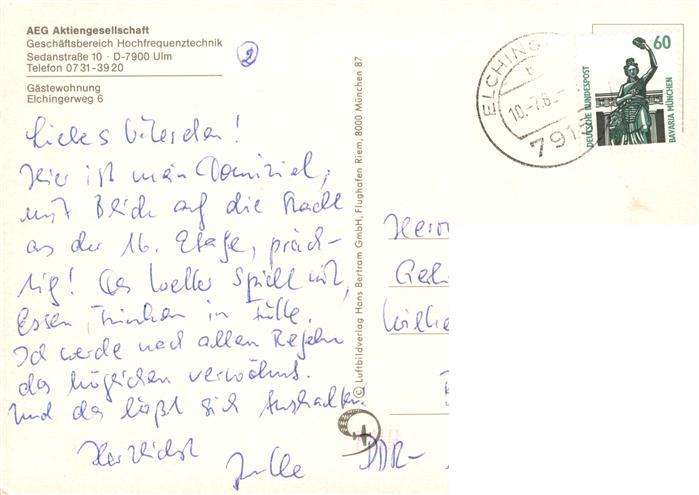 AEG Aktiengesellschaft
Geschäftsbereich Hochfrequenztechnik
Sedanstraße 10 · D-7900 Ulm
Telefon 0731-3920
Gästewohnung
Elchingerweg 6
2
Liebes
Hier ist mein Domizil,
mit Blick auf die Stadt
aus der 16. Etage, präch-
tig! Das Wetter spielt mit,
Essen, Trinken in Fülle.
Ich werde nach allen Regeln
des möglichen verwöhnt.
Und das läßt sich aushalten.
Herzlichst
© Luftbildverlag Hans Bertram GmbH, Flughafen Riem, 8000 München 87
ELCHING
10.-7.8
791
60
DEUTSCHE BUNDESPOST
BAVARIA MÜNCHEN
Herrn
DDR-